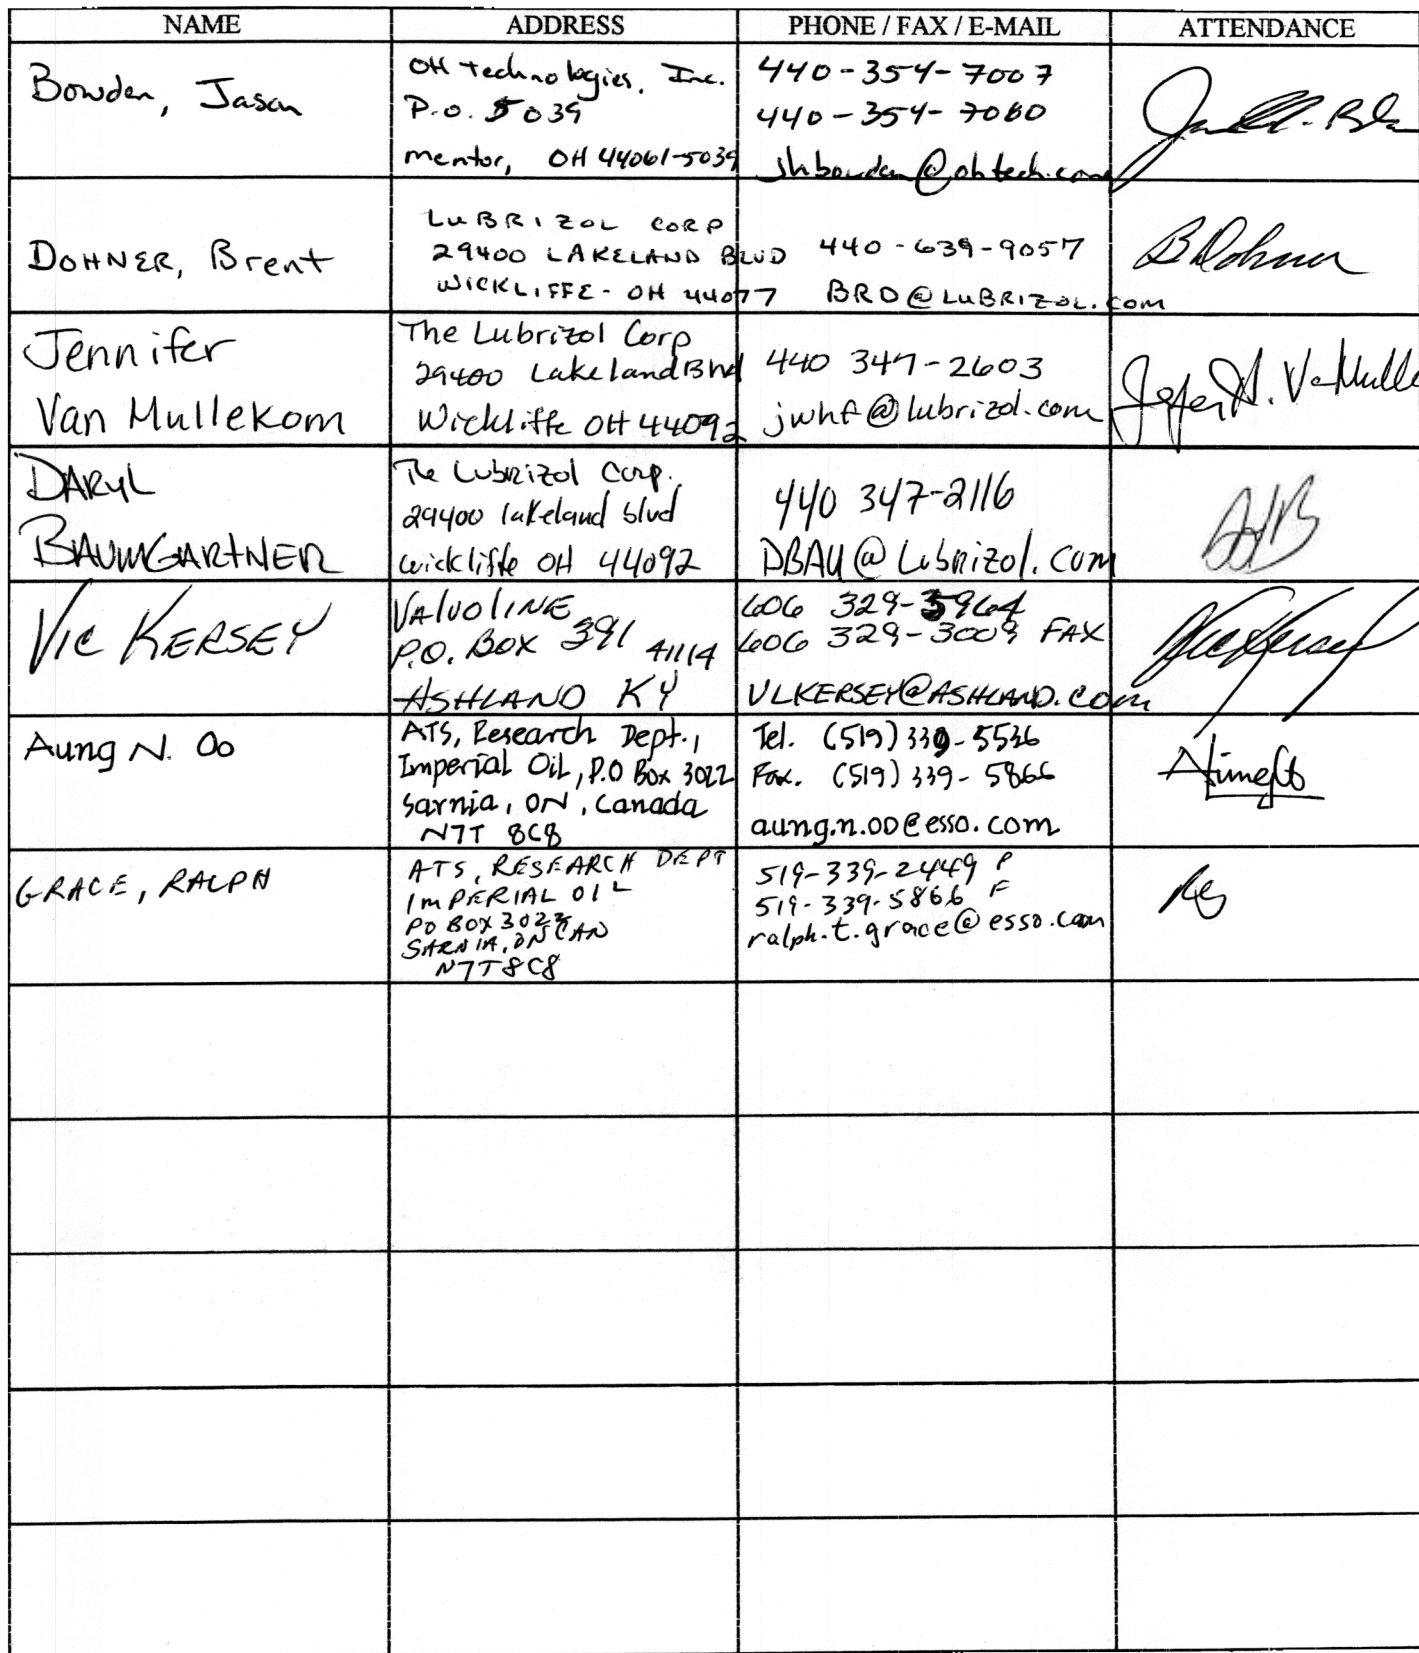 NAME ADDRESS PHONE / FAX / E-MAIL ATTENDANCE
Bowden, Jason
OH technologies, Inc.
P.O. 5039
mentor, OH 44061-5039
440-354-7007
440-354-7080
jhbowden@ohtech.com
DOHNER, Brent
LUBRIZOL CORP
29400 LAKELAND BLVD
WICKLIFFE - OH 44077
440-639-9057
BRD@LUBRIZOL.com
BDohner
Jennifer
Van Mullekom
The Lubrizol Corp
29400 Lakeland Blvd
Wickliffe OH 44092
440 347-2603
jwhf@lubrizol.com
DARYL
BAUMGARTNER
The Lubrizol Corp.
29400 lakeland blvd
wickliffe OH 44092
440 347-2116
DBAU@Lubrizol.com
VIC KERSEY
VALVOLINE
P.O. BOX 391 41114
ASHLAND KY
606 329-5964
606 329-3009 FAX
VLKERSEY@ASHLAND.COM
Aung N. Oo
ATS, Research Dept.,
Imperial Oil, P.O Box 3022
Sarnia, ON, Canada
N7T 8C8
Tel. (519) 339-5536
Fax. (519) 339-5866
aung.n.oo@esso.com
GRACE, RALPH
ATS, RESEARCH DEPT
IMPERIAL OIL
PO BOX 3022
SARNIA, ON CAN
N7T8C8
519-339-2449 P
519-339-5866 F
ralph.t.grace@esso.com